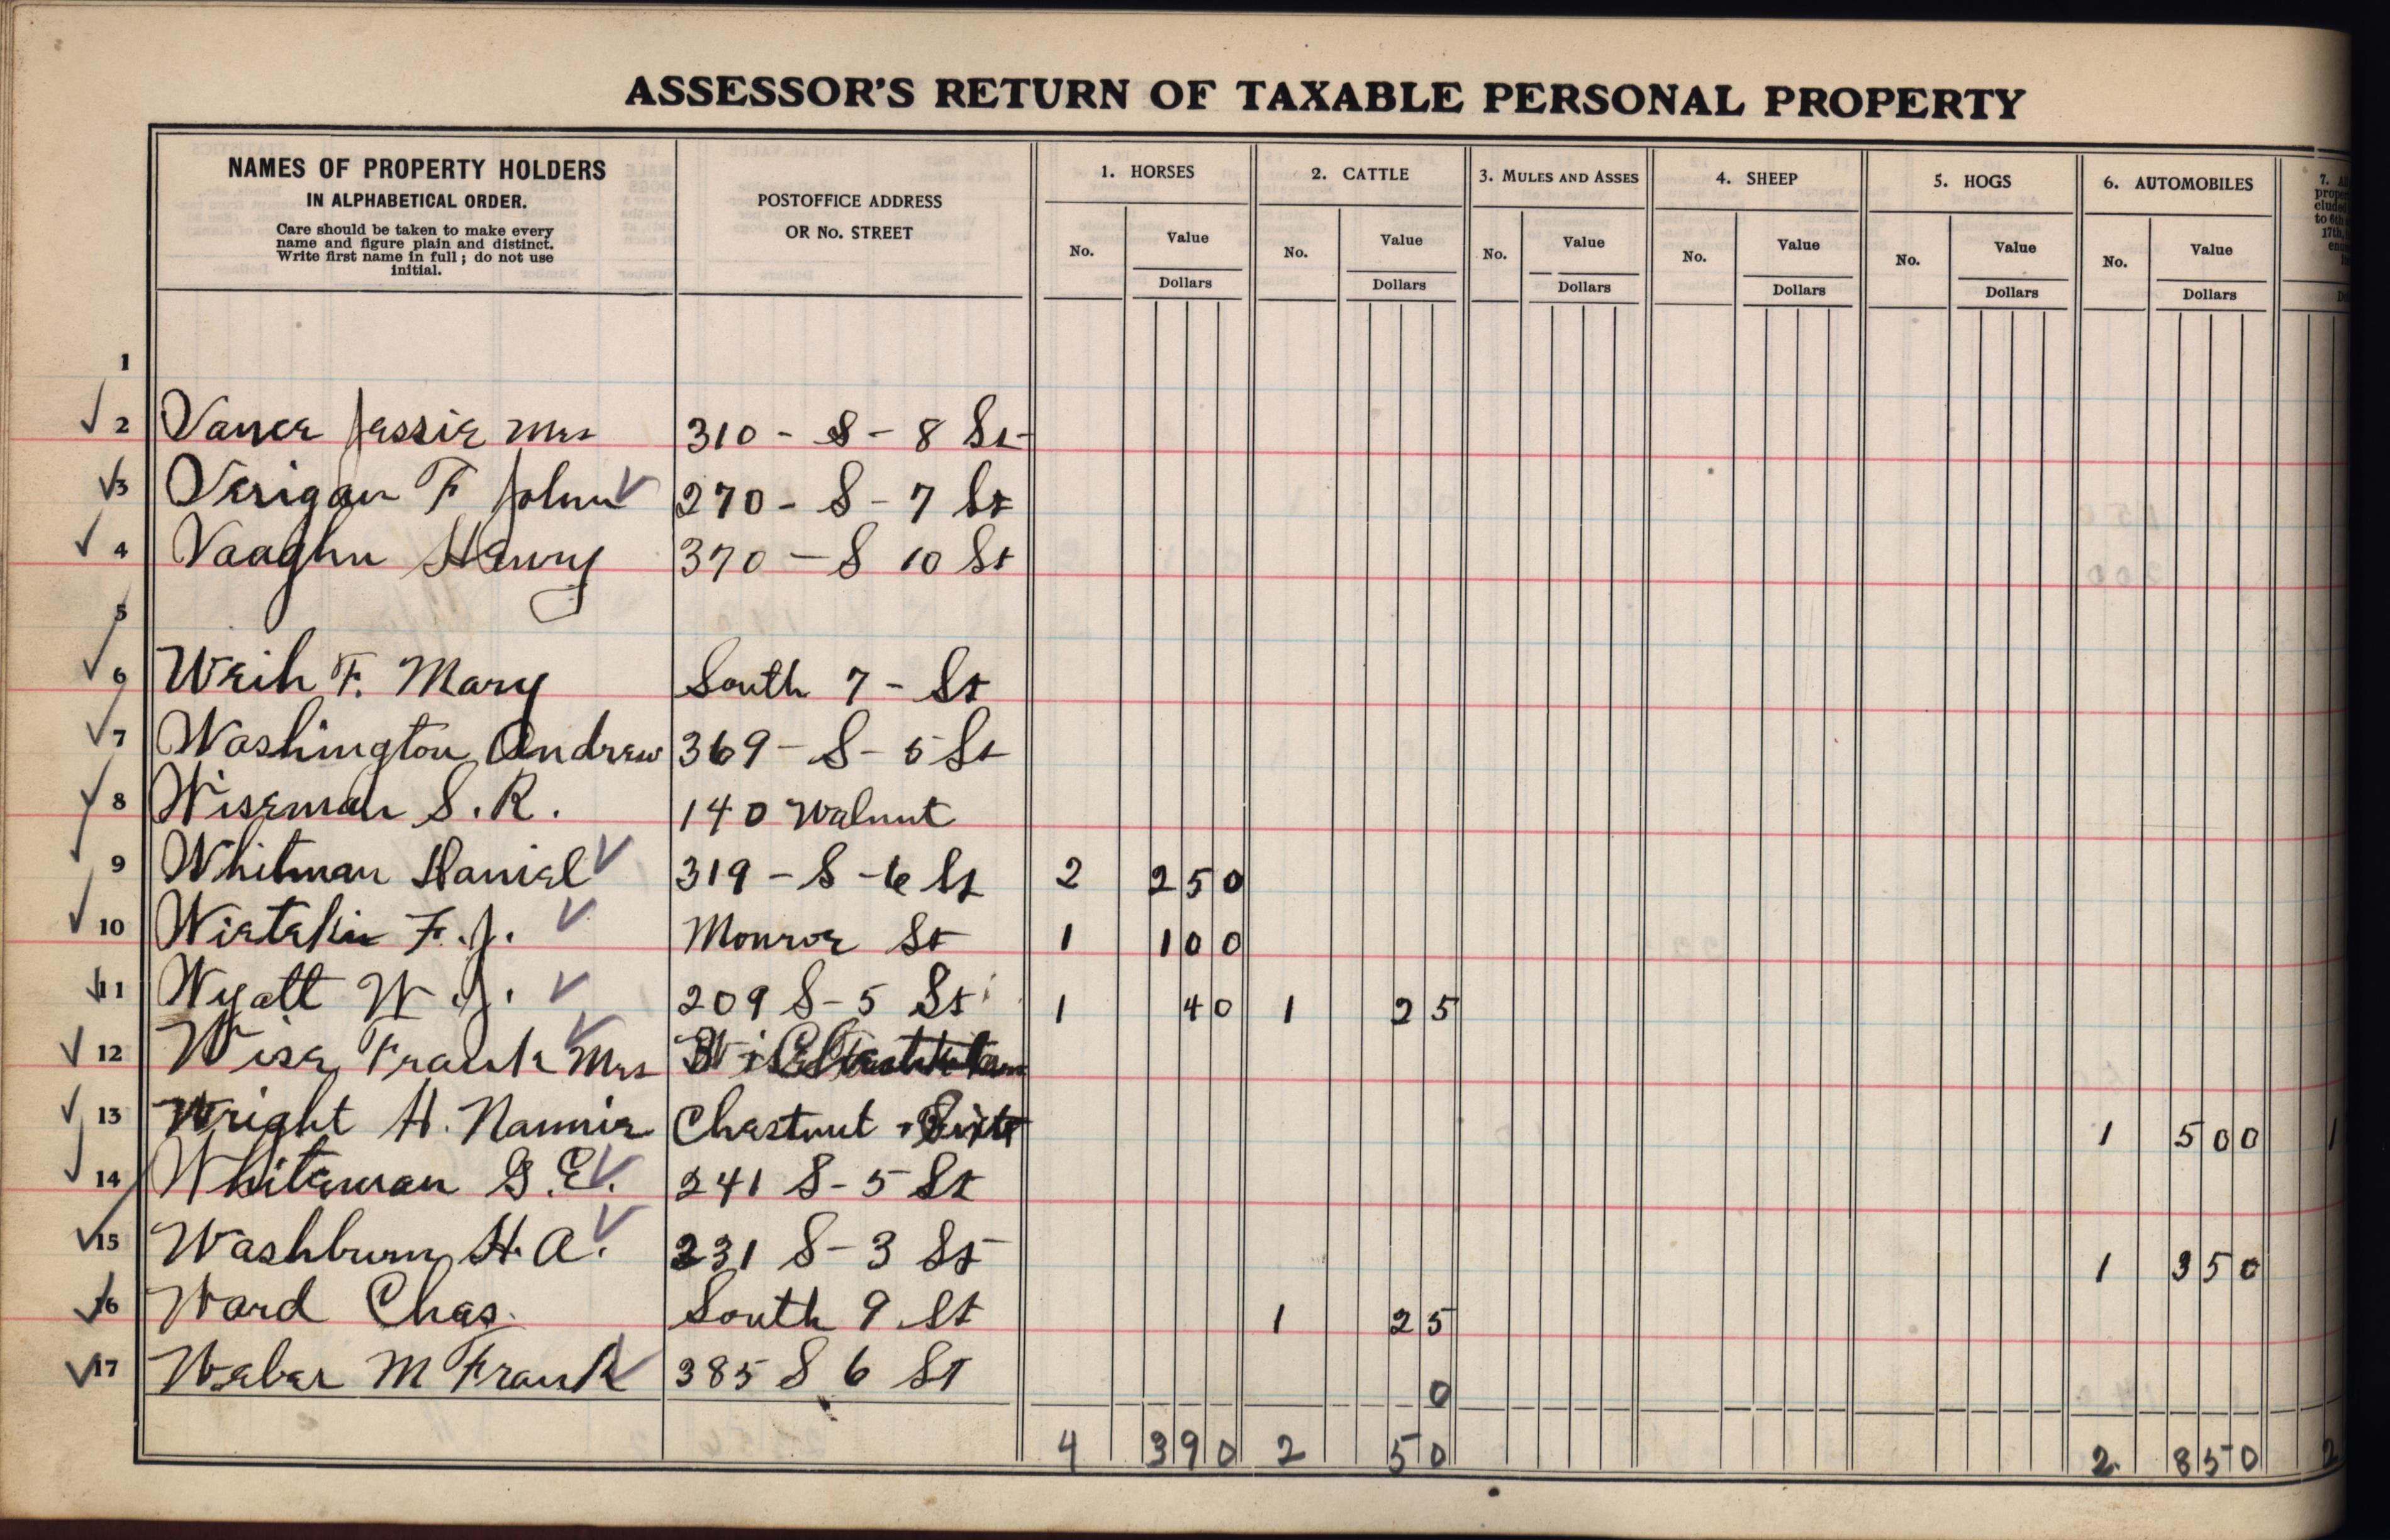 ASSESSOR'S RETURN OF TAXABLE PERSONAL PROPERTY
NAMES OF PROPERTY HOLDERS
IN ALPHABETICAL ORDER.
Care should be taken to make every
name and figure plain and distinct.
Write first name in full; do not use
initial.
POSTOFFICE ADDRESS
OR No. STREET
1. HORSES
No. Value
Dollars
2. CATTLE
No. Value
Dollars
3. MULES AND ASSES
No. Value
Dollars
4. SHEEP
No. Value
Dollars
5. HOGS
No. Value
Dollars
6. AUTOMOBILES
No. Value
Dollars
1
2 Vance Jessie Mrs 310 - S - 8 St
3 Verigan F John 270 - S - 7 St
4 Vaaghn Henry 370 - S 10 St
5
6 Weih F. Mary South 7 - St
7 Washington Andrew 369 - S - 5 St
8 Wiseman S. R. 140 Walnut
9 Whitman Daniel 319 - S - 6 St 2 250
10 F. J. Monroe St 1 100
11 Wyatt W. J. 209 S - 5 St 1 40 1 25
12 Wise Frank Mrs
13 Wright H. Nannie Chestnut 1 500 1
14 Whiteman G. E. 241 S - 5 St
15 Washburn H. A. 231 S - 3 St 1 350
16 Ward Chas. South 9 St 1 25
17 Weber M Frank 385 S 6 St 0
4 390 2 50 2 850 2